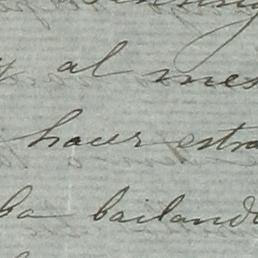 y al mes
hacer estra
ba bailando